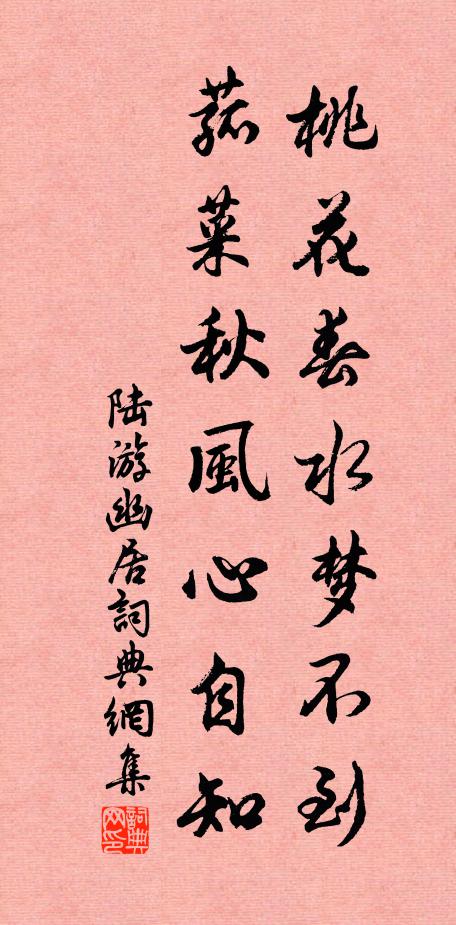 桃花春水梦不到
菰菜秋風心自知
陆游幽居詞典網集
詞典
网印